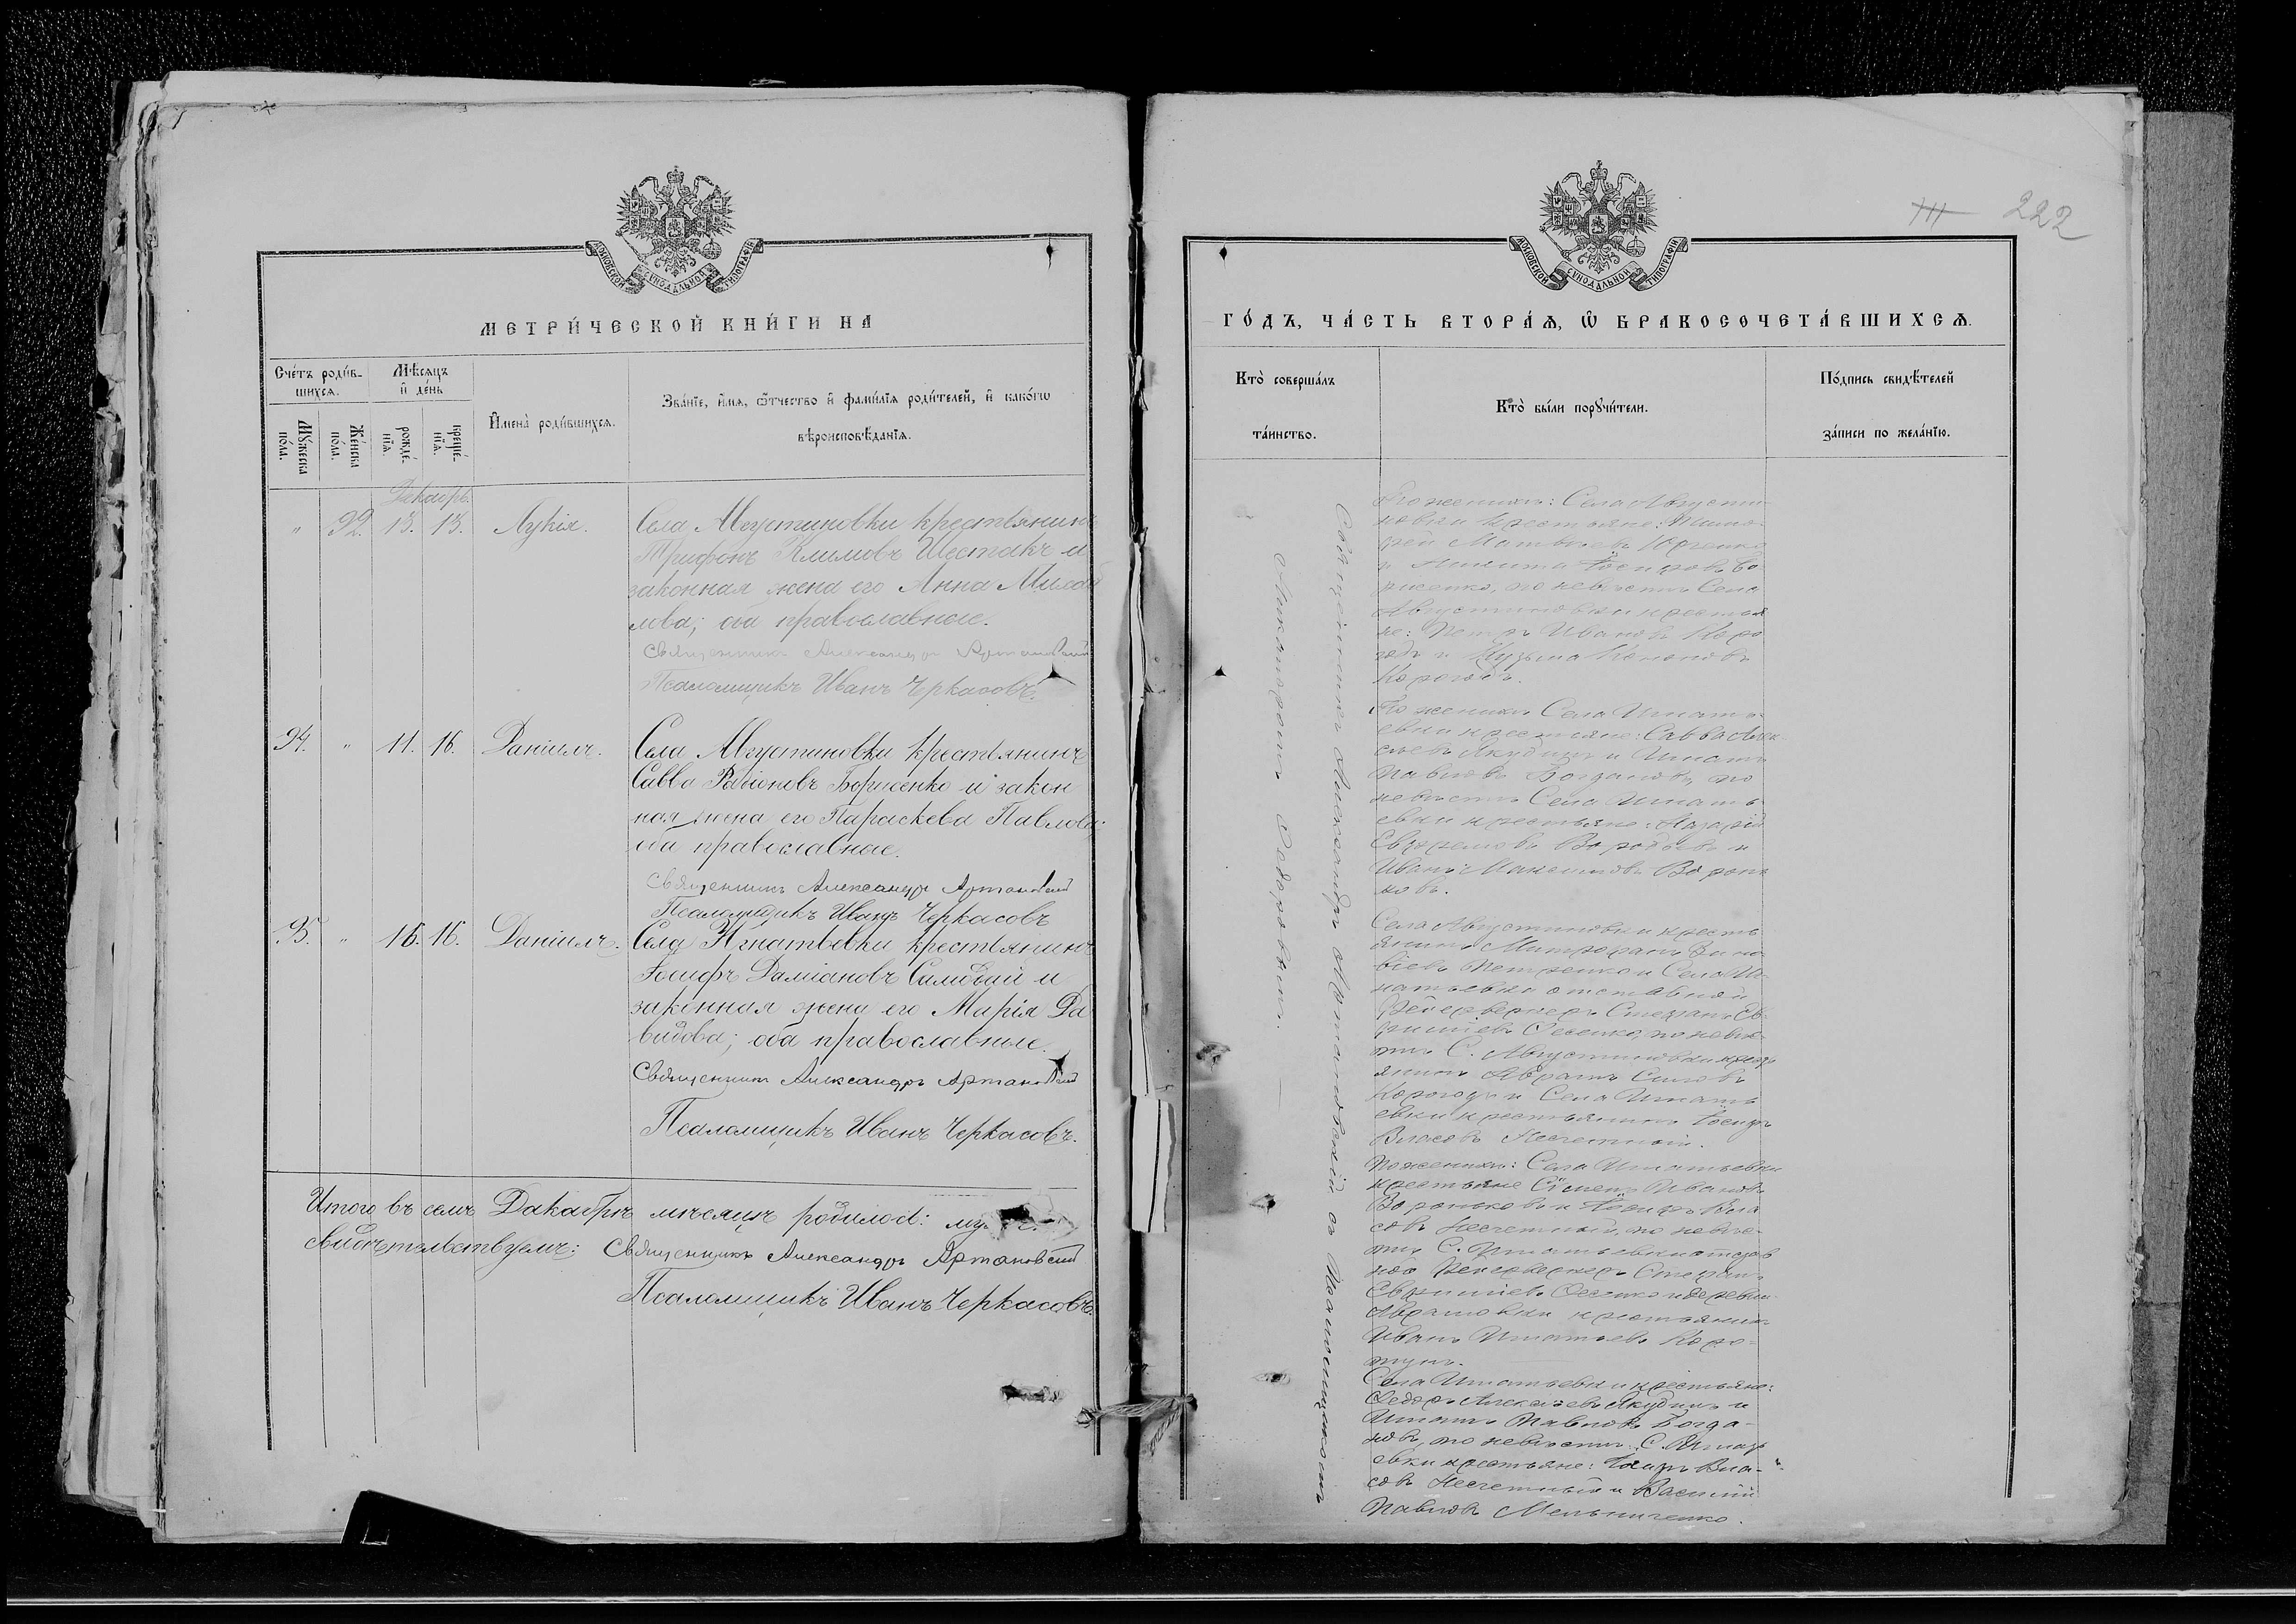 МОСКОВСКОЙ СѴНОДАЛЬНОЙ ТИПОГРАФІИ
МЕТРИ́ЧЕСКОЙ КНИ́ГИ НА
Сче́тъ роди́в-
шихсѧ.
Мѣ́сѧцъ
и҆ де́нь
И҆мена̀ роди́вшихсѧ.
Зва́нїе, и҆́мѧ, ѻ҆́тчество и҆ фами́лїѧ роди́телей, и҆ како́гѡ
вѣроисповѣ́данїѧ.
Мꙋ́жеска
по́ла.
Же́нска
по́ла.
рожде́-
нїѧ.
креще́-
нїѧ.
Декабрь.
" 92. 13. 13. Лукія. Села Августиновки крестьянинъ
Трифонъ Климовъ Шестакъ и
законная жена его Анна
лова; оба православные.
Священникъ Александръ Артановскій
Псаломщикъ Иванъ Черкасовъ.
94. " 11. 16. Даніилъ. Села Августиновки крестьянинъ
Савва Родіоновъ Борисенко и закон
ная жена его Параскева Павлова;
оба православные.
Священникъ Александръ Артановскій
Псаломщикъ Иванъ Черкасовъ
95. " 15. 16. Даніилъ. Села Игнатьевки крестьянинъ
Іосифъ Даміановъ и
законная жена его Марія Да
видова; оба православные.
Священникъ Александръ Артановскій
Псаломщикъ Иванъ Черкасовъ.
Итого въ семъ Декабрѣ мѣсяцѣ родилось:
свидѣтельствуемъ: Священникъ Александръ Артановскій
Псаломщикъ Иванъ Черкасовъ.
222
МОСКОВСКОЙ СѴНОДАЛЬНОЙ ТИПОГРАФІИ
ГО́ДЪ, ЧА́СТЬ ВТОРА́Ѧ, Ѡ҆ БРАКОСОЧЕТА́ВШИХСѦ.
Кто̀ соверша́лъ
та́инство.
Кто̀ бы́ли порꙋчи́тели.
По́дпись свидѣ́телей
за́писи по жела́нїю.
Священникъ Александръ Артановскій съ Псаломщикомъ
По женихѣ: Села Августи
новки крестьяне: Тимо-
фей Матвѣевъ
и Никита Іосифовъ Бо
рисенко, по невѣстѣ Села
Августиновки крестья
не: Петръ Ивановъ Коро
годъ и Кузьма Кононовъ
Корогодъ.
По женихѣ Села Игнать-
евки крестьяне: Савва Алек-
сѣевъ Якудинъ и Игнатъ
Павловъ Богдановъ, по
невѣстѣ Села Игнать-
евки крестьяне: Назарій
Евфремовъ и
Иванъ Максимовъ Ворон
ковъ.
Села Августиновки кресть
янинъ Митрофанъ Зино
віевъ Петренко и Села Иг-
натьевки отставной
фейерверкеръ Стефанъ Ев-
фиміевъ Фесенко, по невѣс-
тѣ С. Августиновки крест
янинъ Абрамъ
Корогодъ и Села Игнать
евки крестьянинъ Іосифъ
Власовъ Несчетный.
По женихѣ: Села Игнатьевки
крестьяне Симеонъ Ивановъ
Воронковъ и Іосифъ Вла
совъ Несчетный, по невѣс-
тѣ С. Игнатьевки отстав
ной фейерверкеръ Стефанъ
Евфиміевъ Фесенко и деревни
Абрамовки крестьянинъ
Иванъ Игнатьевъ Коро-
тунъ.
Села Игнатьевки крестьяне:
Федоръ Алексѣевъ Якудинъ и
Игнатъ Павловъ Богда-
новъ, по невѣстѣ: С. Игнать
евки крестьяне: Іосифъ Вла-
совъ Несчетный и Василій
Павловъ Мельниченко.